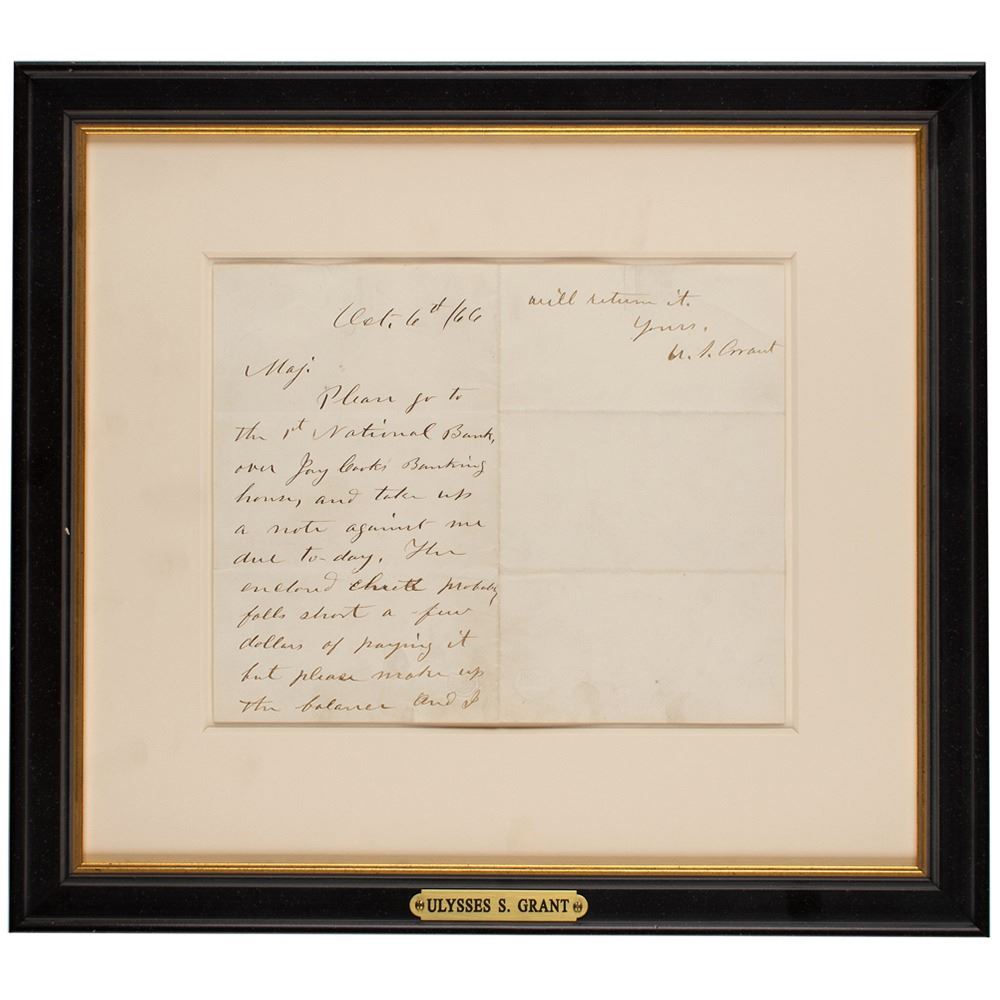 Oct. 6th /66
Maj.
Please go to
the 1st National Bank,
over Jay Cook's Banking
house, and take up
a note against me
due to-day. The
enclosed check probably
falls short a few
dollars of paying it
but please make up
the balance and I
will return it.
Yours,
U. S. Grant
ULYSSES S. GRANT